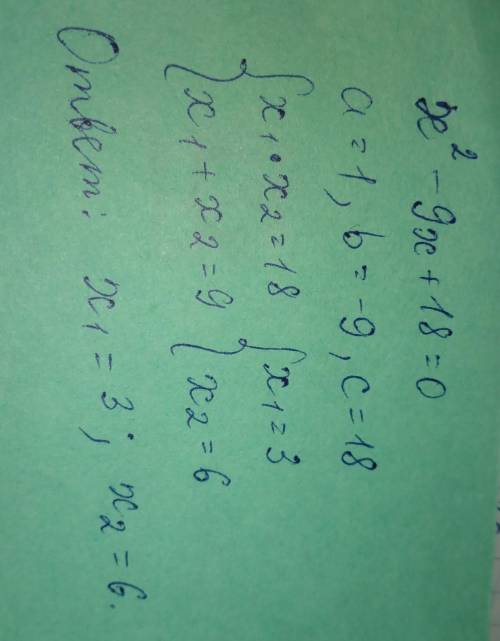 x² - 9x + 18 = 0
a = 1, b = -9, c = 18
{ x1 • x2 = 18 { x1 = 3
{ x1 + x2 = 9 { x2 = 6
Ответ: x1 = 3; x2 = 6.